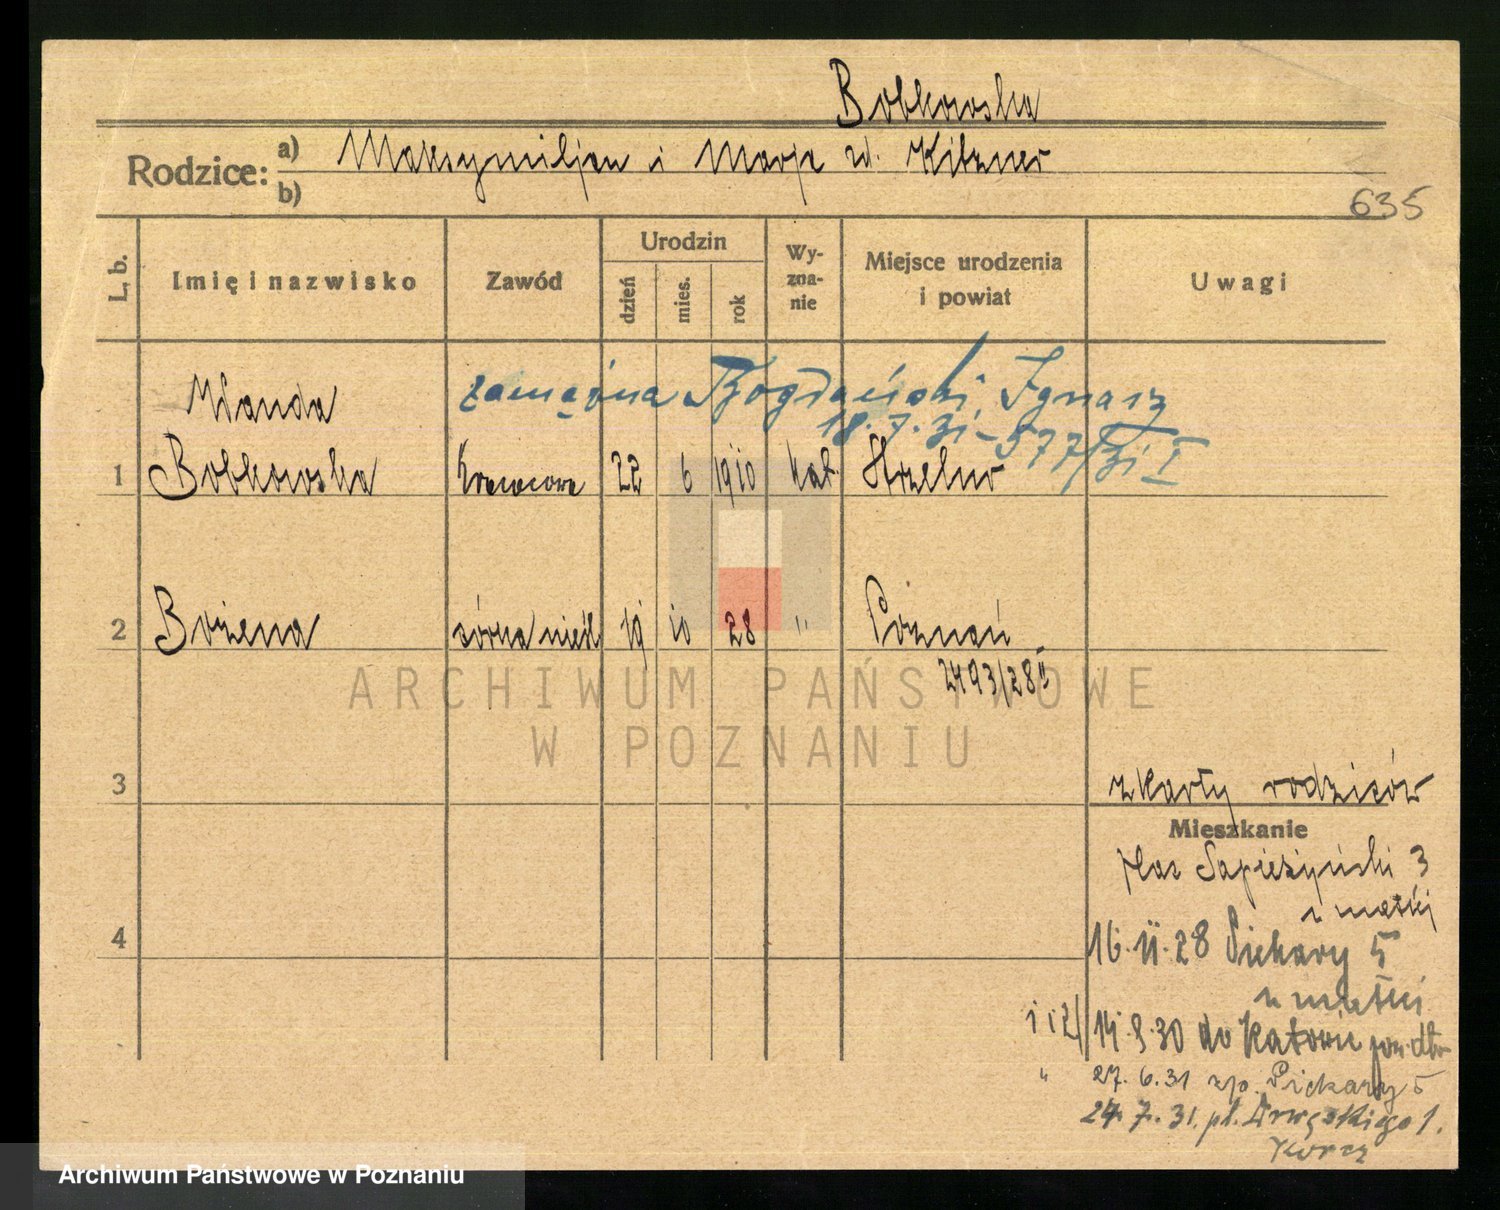 Bobkowska
Rodzice: a) Maksymiljan i Marja zd. Kitzner
b)
635
L. b. Imię i nazwisko Zawód Urodzin dzień mies. rok Wy-zna-nie Miejsce urodzenia i powiat Uwagi
zamężna Bogdański Ignacz
18.7.31 - 577/31 I
Wanda
1 Bobkowska Krawcowa 22 6 1910 kat. Strzelno
2 Bożena córka nieśl 19 10 28 " Poznań
2493/28 II
ARCHIWUM PAŃSTWOWE
W POZNANIU
3
z karty rodziców
Mieszkanie
Plac Sapieżyński 3
u matki
4
16.11.28 Piekary 5
u matki
i 12/ 14.8.30 do Katowic
" 27.6.31 Piekary 5
24.7.31. pl. Drwęskiego 1.
Archiwum Państwowe w Poznaniu